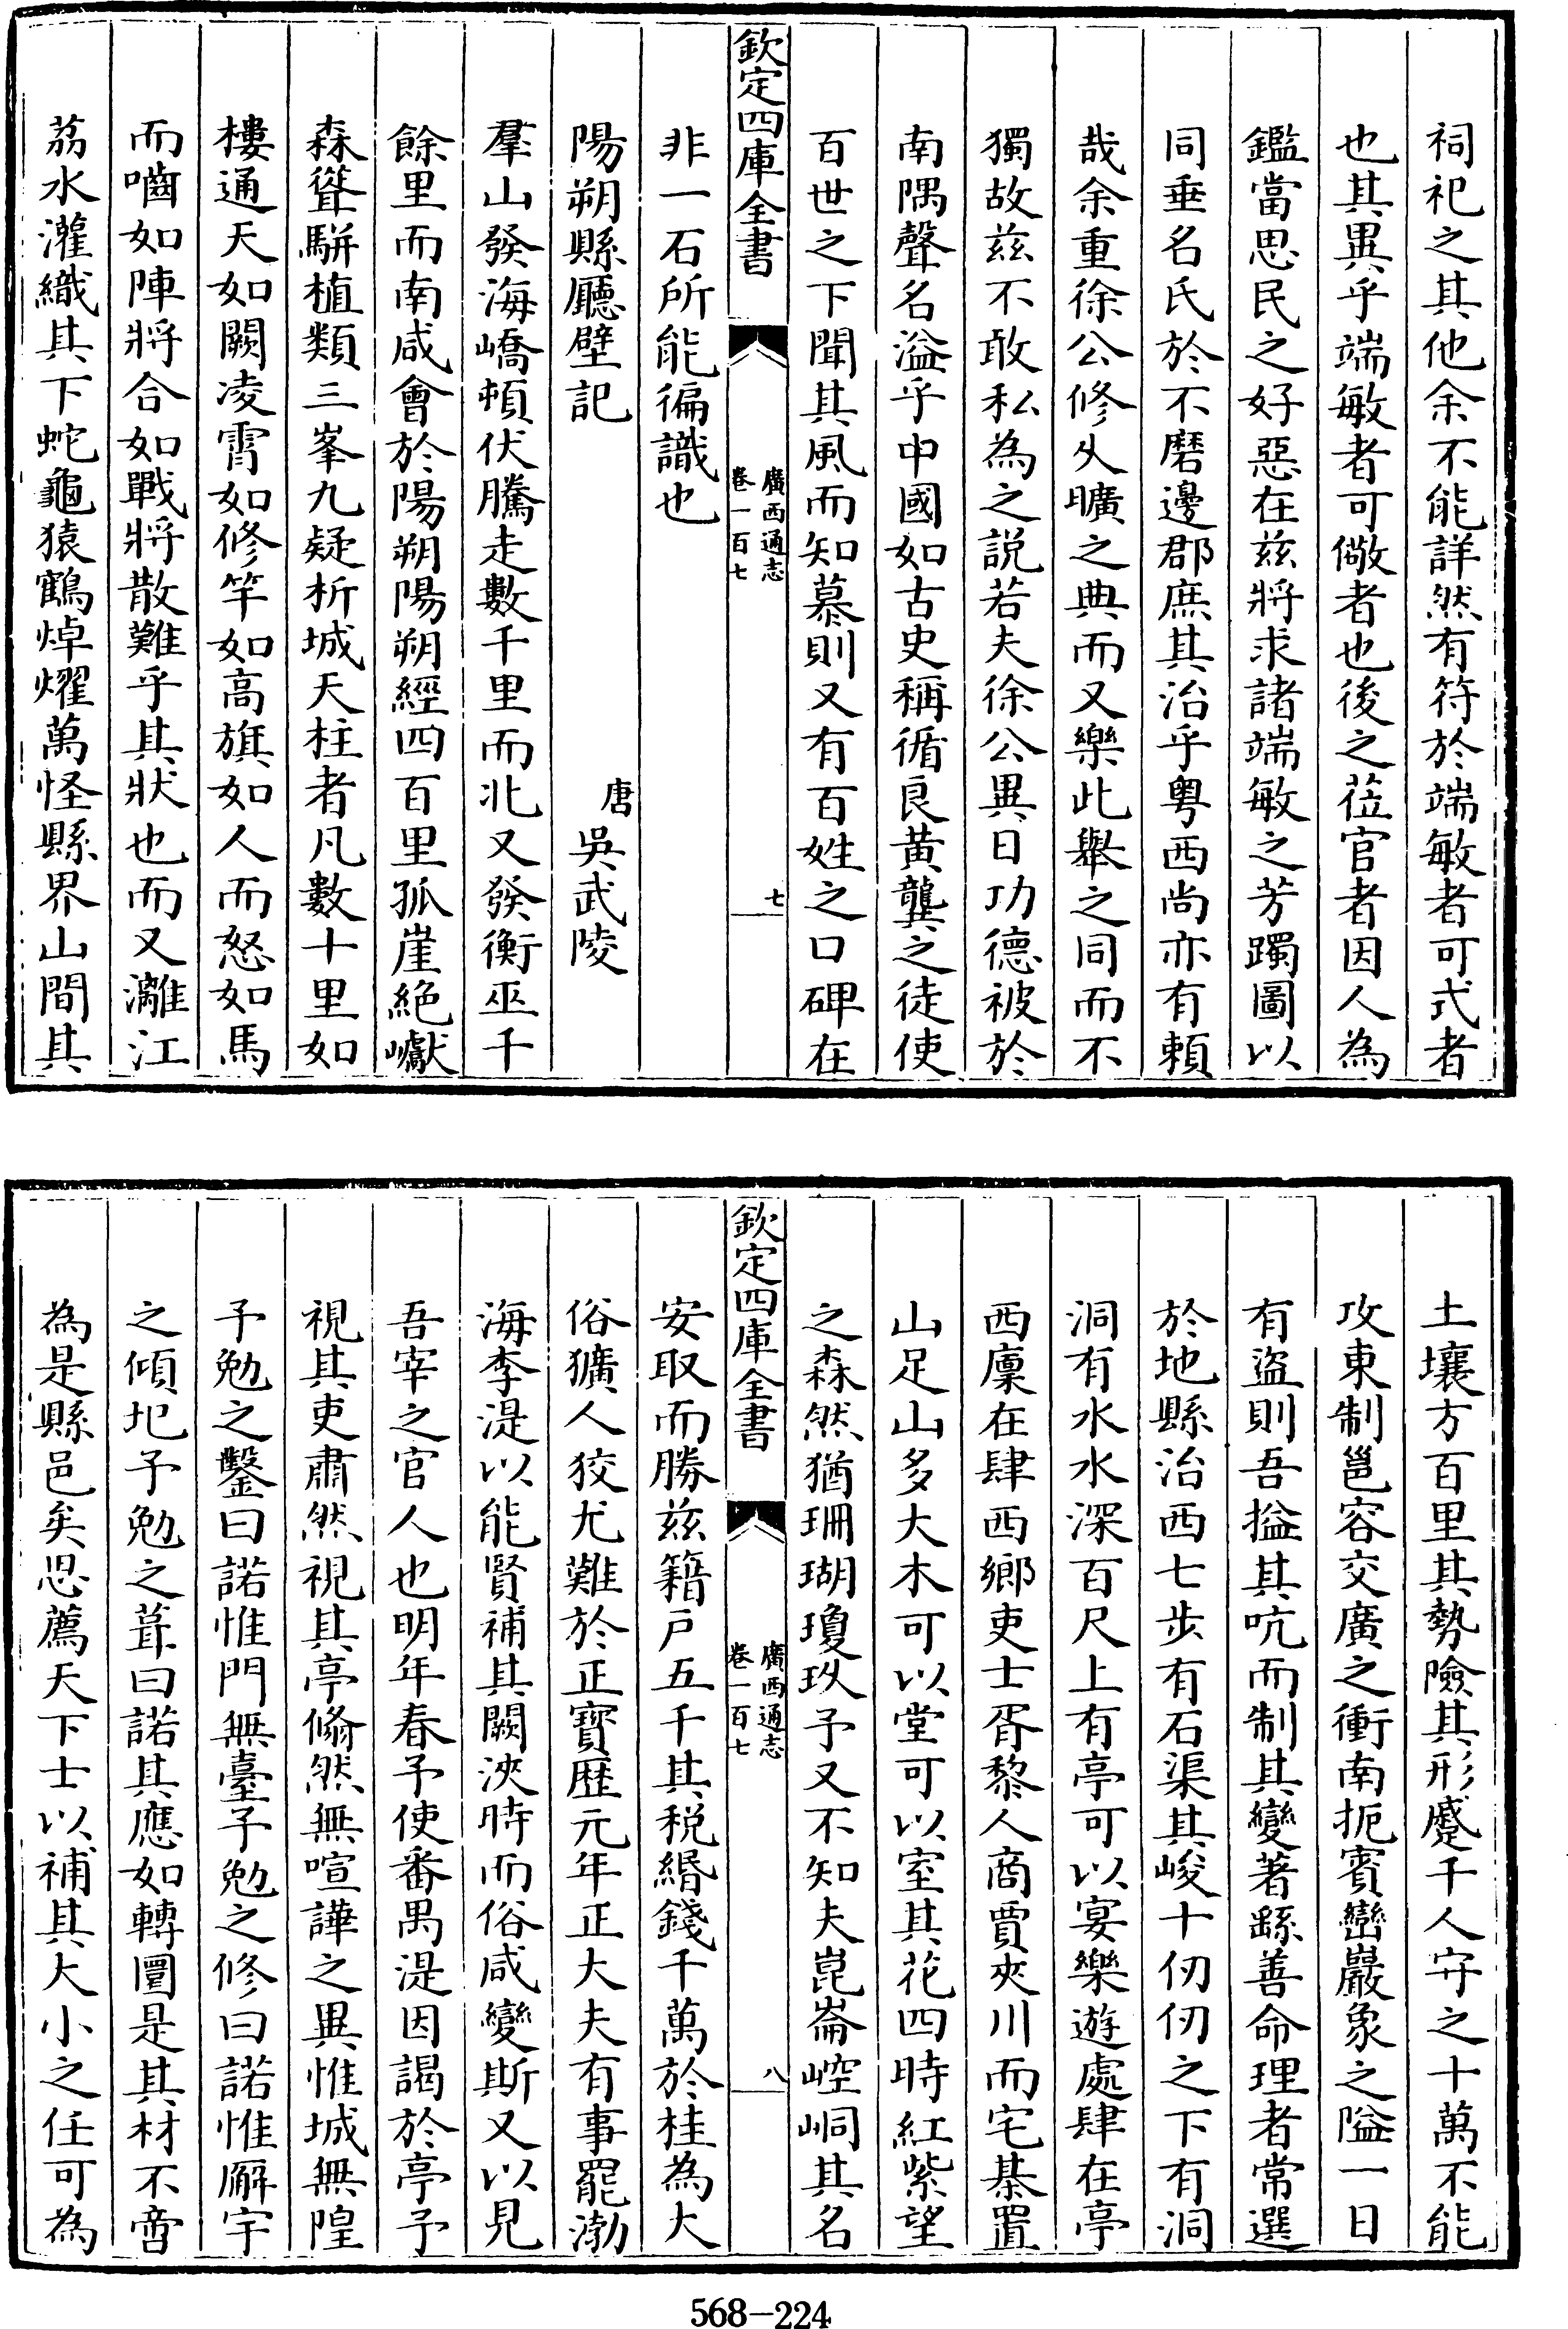 祠祀之其他余不能詳然有符於端敏者可式者
也其異乎端敏者可儆者也後之莅官者因人為
鑑當思民之好惡在兹將求諸端敏之芳躅圖以
同垂名氏於不磨邊郡庶其治乎粤西尚亦有賴
哉余重徐公修乆曠之典而又樂此舉之同而不
獨故兹不敢私為之説若夫徐公異日功德被於
南隅聲名溢乎中國如古史稱循良黄龔之徒使
百世之下聞其風而知慕則又有百姓之口碑在
欽定四庫全書
廣西通志
卷一百七
七
非一石所能徧識也
陽朔縣廳壁記
唐吳武陵
羣山發海嶠頓伏騰走數千里而北又發衡巫千
餘里而南咸會於陽朔陽朔經四百里孤崖絶巘
森聳駢植類三峯九疑析城天柱者凡數十里如
樓通天如闕凌霄如修竿如高旗如人而怒如馬
而嚙如陣將合如戰將散難乎其狀也而又灕江
荔水灌織其下蛇龜猿鶴焯燿萬怪縣界山間其
土壤方百里其勢險其形蹙千人守之十萬不能
攻東制邕容交廣之衝南扼賓巒巖象之隘一日
有盜則吾搤其吭而制其變著繇善命理者常選
於地縣治西七步有石渠其峻十仞仞之下有洞
洞有水水深百尺上有亭可以宴樂遊處肆在亭
西廩在肆西鄉吏士胥黎人商賈夾川而宅棊置
山足山多大木可以堂可以室其花四時紅紫望
之森然猶珊瑚瓊玖予又不知夫崑崙崆峒其名
欽定四庫全書
廣西通志
卷一百七
八
安取而勝兹籍戸五千其税緡錢千萬於桂為大
俗獷人狡尤難於正寳歴元年正大夫有事罷渤
海李湜以能賢補其闕浹時而俗咸變斯又以見
吾宰之官人也明年春予使番禺湜因謁於亭予
視其吏肅然視其亭翛然無喧譁之異惟城無隍
予勉之鑿曰諾惟門無臺予勉之修曰諾惟廨宇
之傾圮予勉之葺曰諾其應如轉圜是其材不啻
為是縣邑矣思薦天下士以補其大小之任可為
568-224